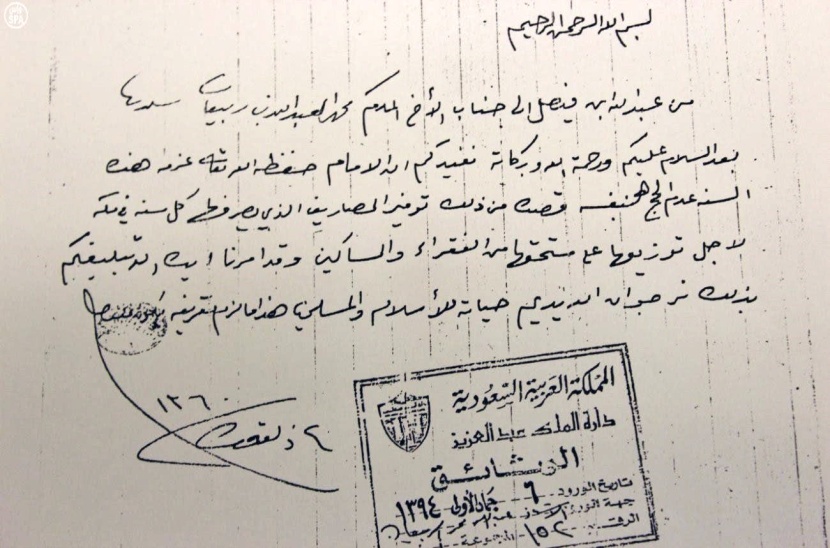 بسم الله الرحمن الرحيم
من عبدالله ابن فيصل الى جناب الأخ المكرم محمد العبدالله ربيعان سلمه
بعد السلام عليكم ورحمة الله وبركاته نفيدكم ان الامام حفظه الله تعالى عزم هذه
السنه عدم الحج بنفسه قصده من ذلك توفير المصاريف الذي يصرفها كل سنه في مكه
لاجل توزيعها على مستحقها من الفقراء والمساكين وقد امرنا تبليغكم
بذلك نرجو ان الله يديم حياته للأسلام والمسلمين هذا مالزم تعريفه
٢ ذ لقعده ١٣٦٠
المملكة العربية السعودية
دارة الملك عبد العزيز
الوثائق
تاريخ الورود ٦ جماد الأولى ١٣٩٤
جهة الورود
الرقم ١٥٢ المجموعة